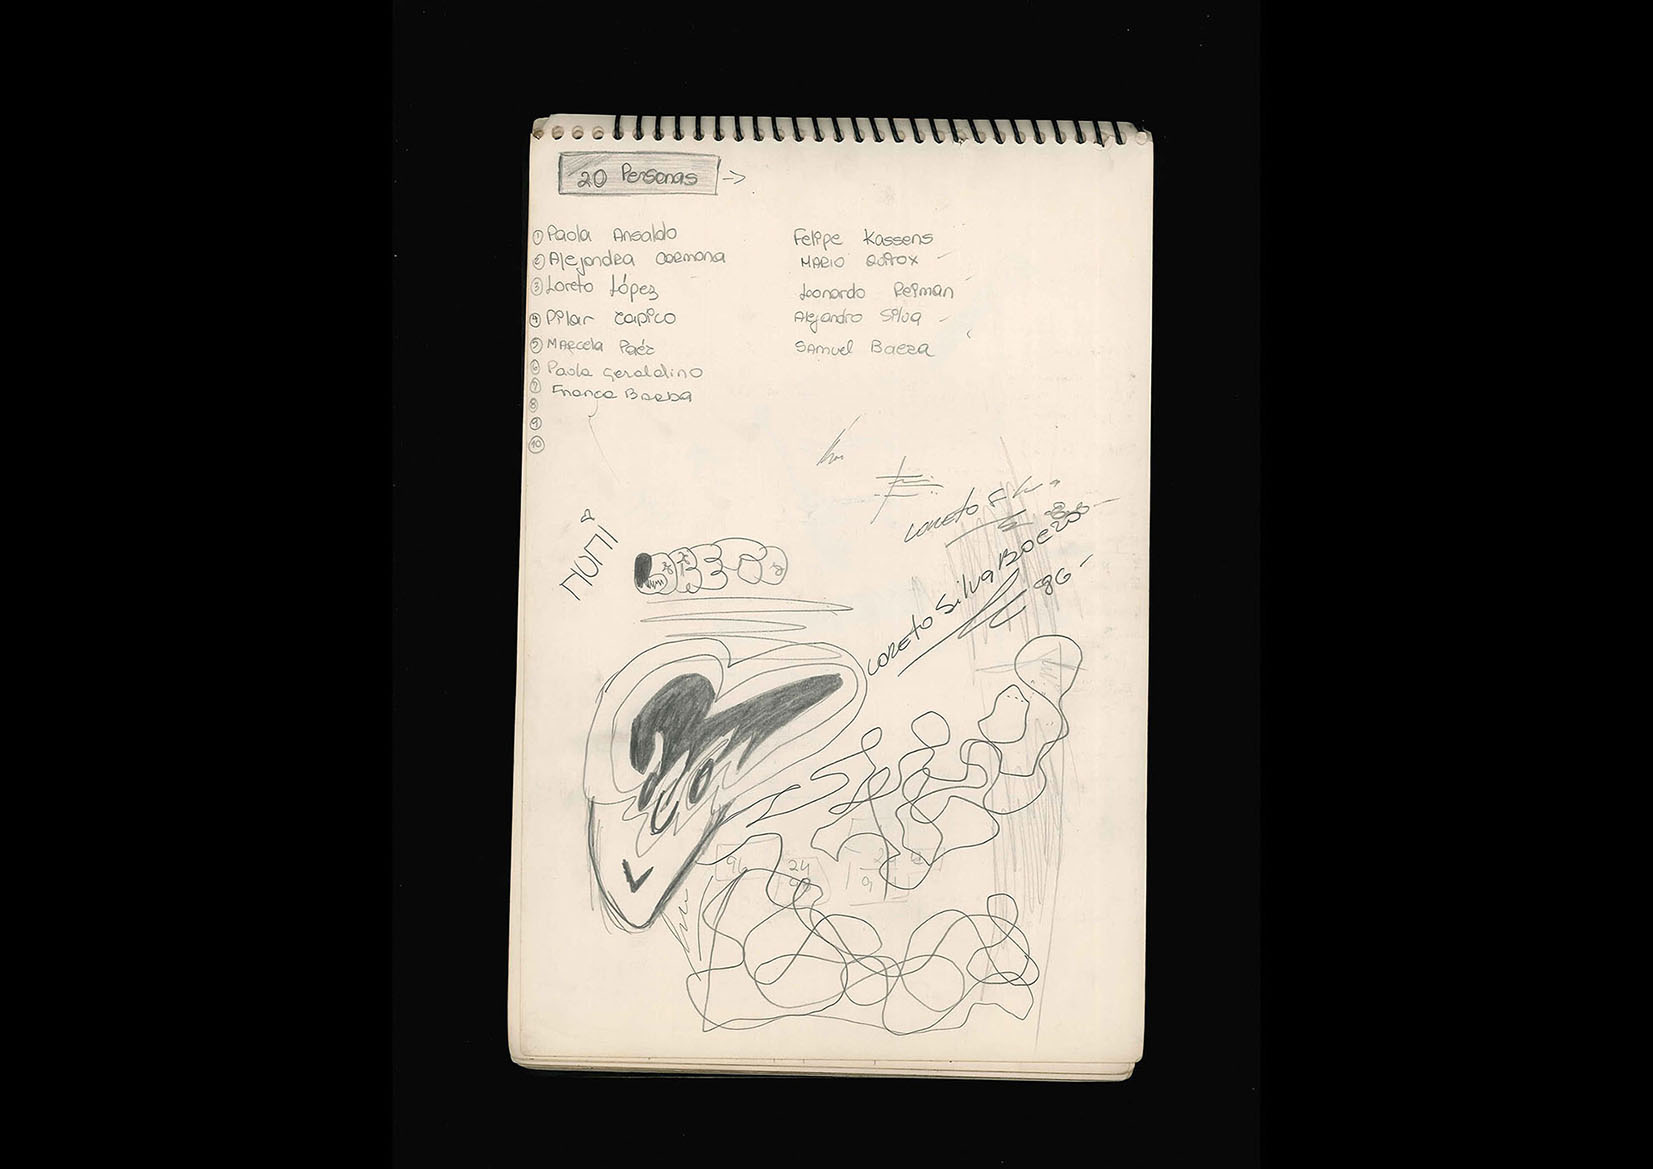 20 Personas →
① Paola Ansaldo
② Alejandra Carmona
③ Loreto López
④ Pilar Capico
⑤ Marcela Paéz
⑥ Paola Geraldino
⑦ Franca Barba
⑧
⑨
⑩
Felipe Kassens
Mario
Leonardo Reiman
Alejandro Silva
Samuel Baeza
Loreto
NUNI
LORETO
Loreto Silva Baeza
96
96
24